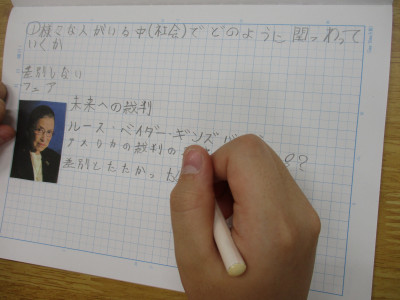 ①様々な人がいる中(社会)でどのように関わって
いくか
差別しない
フェア
未来への裁判
ルース・ベイダー・ギンズバーグ
アメリカの裁判の
差別とたたかっ
??